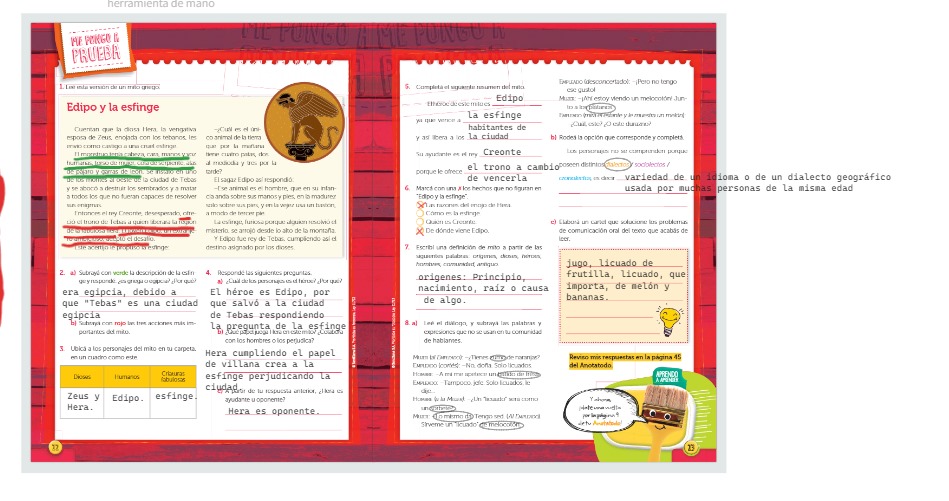 herramienta de mano
ME PONGO A
PRUEBA
1. Leé esta versión de un mito griego.
Edipo y la esfinge
Cuentan que la diosa Hera, la vengativa
esposa de Zeus, enojada con los tebanos, les
envió como castigo a una cruel esfinge.
El monstruo tenía cabeza, cara, manos y voz
humanas, torso de mujer, cola de serpiente, alas
de pájaro y garras de león. Se instaló en uno
de los montes al oeste de la ciudad de Tebas
y se abocó a destruir los sembrados y a matar
a todos los que no fueran capaces de resolver
sus enigmas.
Entonces el rey Creonte, desesperado, ofre-
ció el trono de Tebas a quien liberara la región
de la fabulosa fiera.
aceptó el desafío.
Este acertijo le propuso la esfinge:
–¿Cuál es el úni-
co animal de la tierra
que por la mañana
tiene cuatro patas, dos
al mediodía y tres por la
tarde?
El sagaz Edipo así respondió:
–Ese animal es el hombre, que en su infan-
cia anda sobre sus manos y pies, en la madurez
solo sobre sus pies, y en la vejez usa un bastón,
a modo de tercer pie.
La esfinge, furiosa porque alguien resolvió el
misterio, se arrojó desde lo alto de la montaña.
Y Edipo fue rey de Tebas, cumpliendo así el
destino asignado por los dioses.
2. a) Subrayá con verde la descripción de la esfin-
ge y respondé: ¿es griega o egipcia? ¿Por qué?
era egipcia, debido a
que "Tebas" es una ciudad
egipcia
b) Subrayá con rojo las tres acciones más im-
portantes del mito.
3. Ubicá a los personajes del mito en tu carpeta,
en un cuadro como este.
Dioses Humanos Criaturas fabulosas
Zeus y Hera. Edipo. esfinge.
12
4. Respondé las siguientes preguntas.
a) ¿Cuál de los personajes es el héroe? ¿Por qué?
El héroe es Edipo, por
que salvó a la ciudad
de Tebas respondiendo
la pregunta de la esfinge
b) ¿Qué papel juega Hera en este mito? ¿Colabora
con los hombres o los perjudica?
Hera cumpliendo el papel
de villana crea a la
esfinge perjudicando la
ciudad
c) A partir de la respuesta anterior, ¿Hera es
ayudante u oponente?
Hera es oponente.
5. Completá el siguiente resumen del mito.
El héroe de este mito es Edipo
ya que vence a la esfinge
y así libera a los habitantes de
la ciudad
Su ayudante es el rey Creonte
porque le ofrece el trono a cambio
de vencerla
6. Marcá con una X los hechos que no figuran en
"Edipo y la esfinge".
Las razones del enojo de Hera.
Cómo es la esfinge.
Quién es Creonte.
De dónde viene Edipo.
7. Escribí una definición de mito a partir de las
siguientes palabras: orígenes, dioses, héroes,
hombres, comunidad, antiguo.
origenes: Principio,
nacimiento, raíz o causa
de algo.
8. a) Leé el diálogo, y subrayá las palabras y
expresiones que no se usan en tu comunidad
de hablantes.
MUJER (al EMPLEADO): –¿Tienes zumo de naranjas?
EMPLEADO (cortés): –No, doña. Solo licuados.
HOMBRE: –A mí me apetece un batido de fresa.
EMPLEADO: –Tampoco, jefe. Solo licuados, le
dije...
HOMBRE (a la MUJER): –¿Un "licuado" será como
un
MUJER: –Lo mismo da. Tengo sed. (Al EMPLEADO)
Sírveme un "licuado" de melocotón.
EMPLEADO (desconcertado): –¡Pero no tengo
ese gusto!
MUJER: –¡Ahí estoy viendo un melocotón! Jun-
to a los plátanos.
EMPLEADO (mira el estante y le muestra un melón):
¿Cuál, este? ¿O este durazno?
b) Rodeá la opción que corresponde y completá.
Los personajes no se comprenden porque
poseen distintos dialectos / sociolectos /
cronolectos, es decir variedad de un idioma o de un dialecto geográfico
usada por muchas personas de la misma edad
c) Elaborá un cartel que solucione los problemas
de comunicación oral del texto que acabás de
leer.
jugo, licuado de
frutilla, licuado, que
importa, de melón y
bananas.
Reviso mis respuestas en la página 45
del Anotatodo.
APRENDO
A APRENDER
Y ahora,
¡date una vuelta
por la página 9
de tu Anotatodo!
13